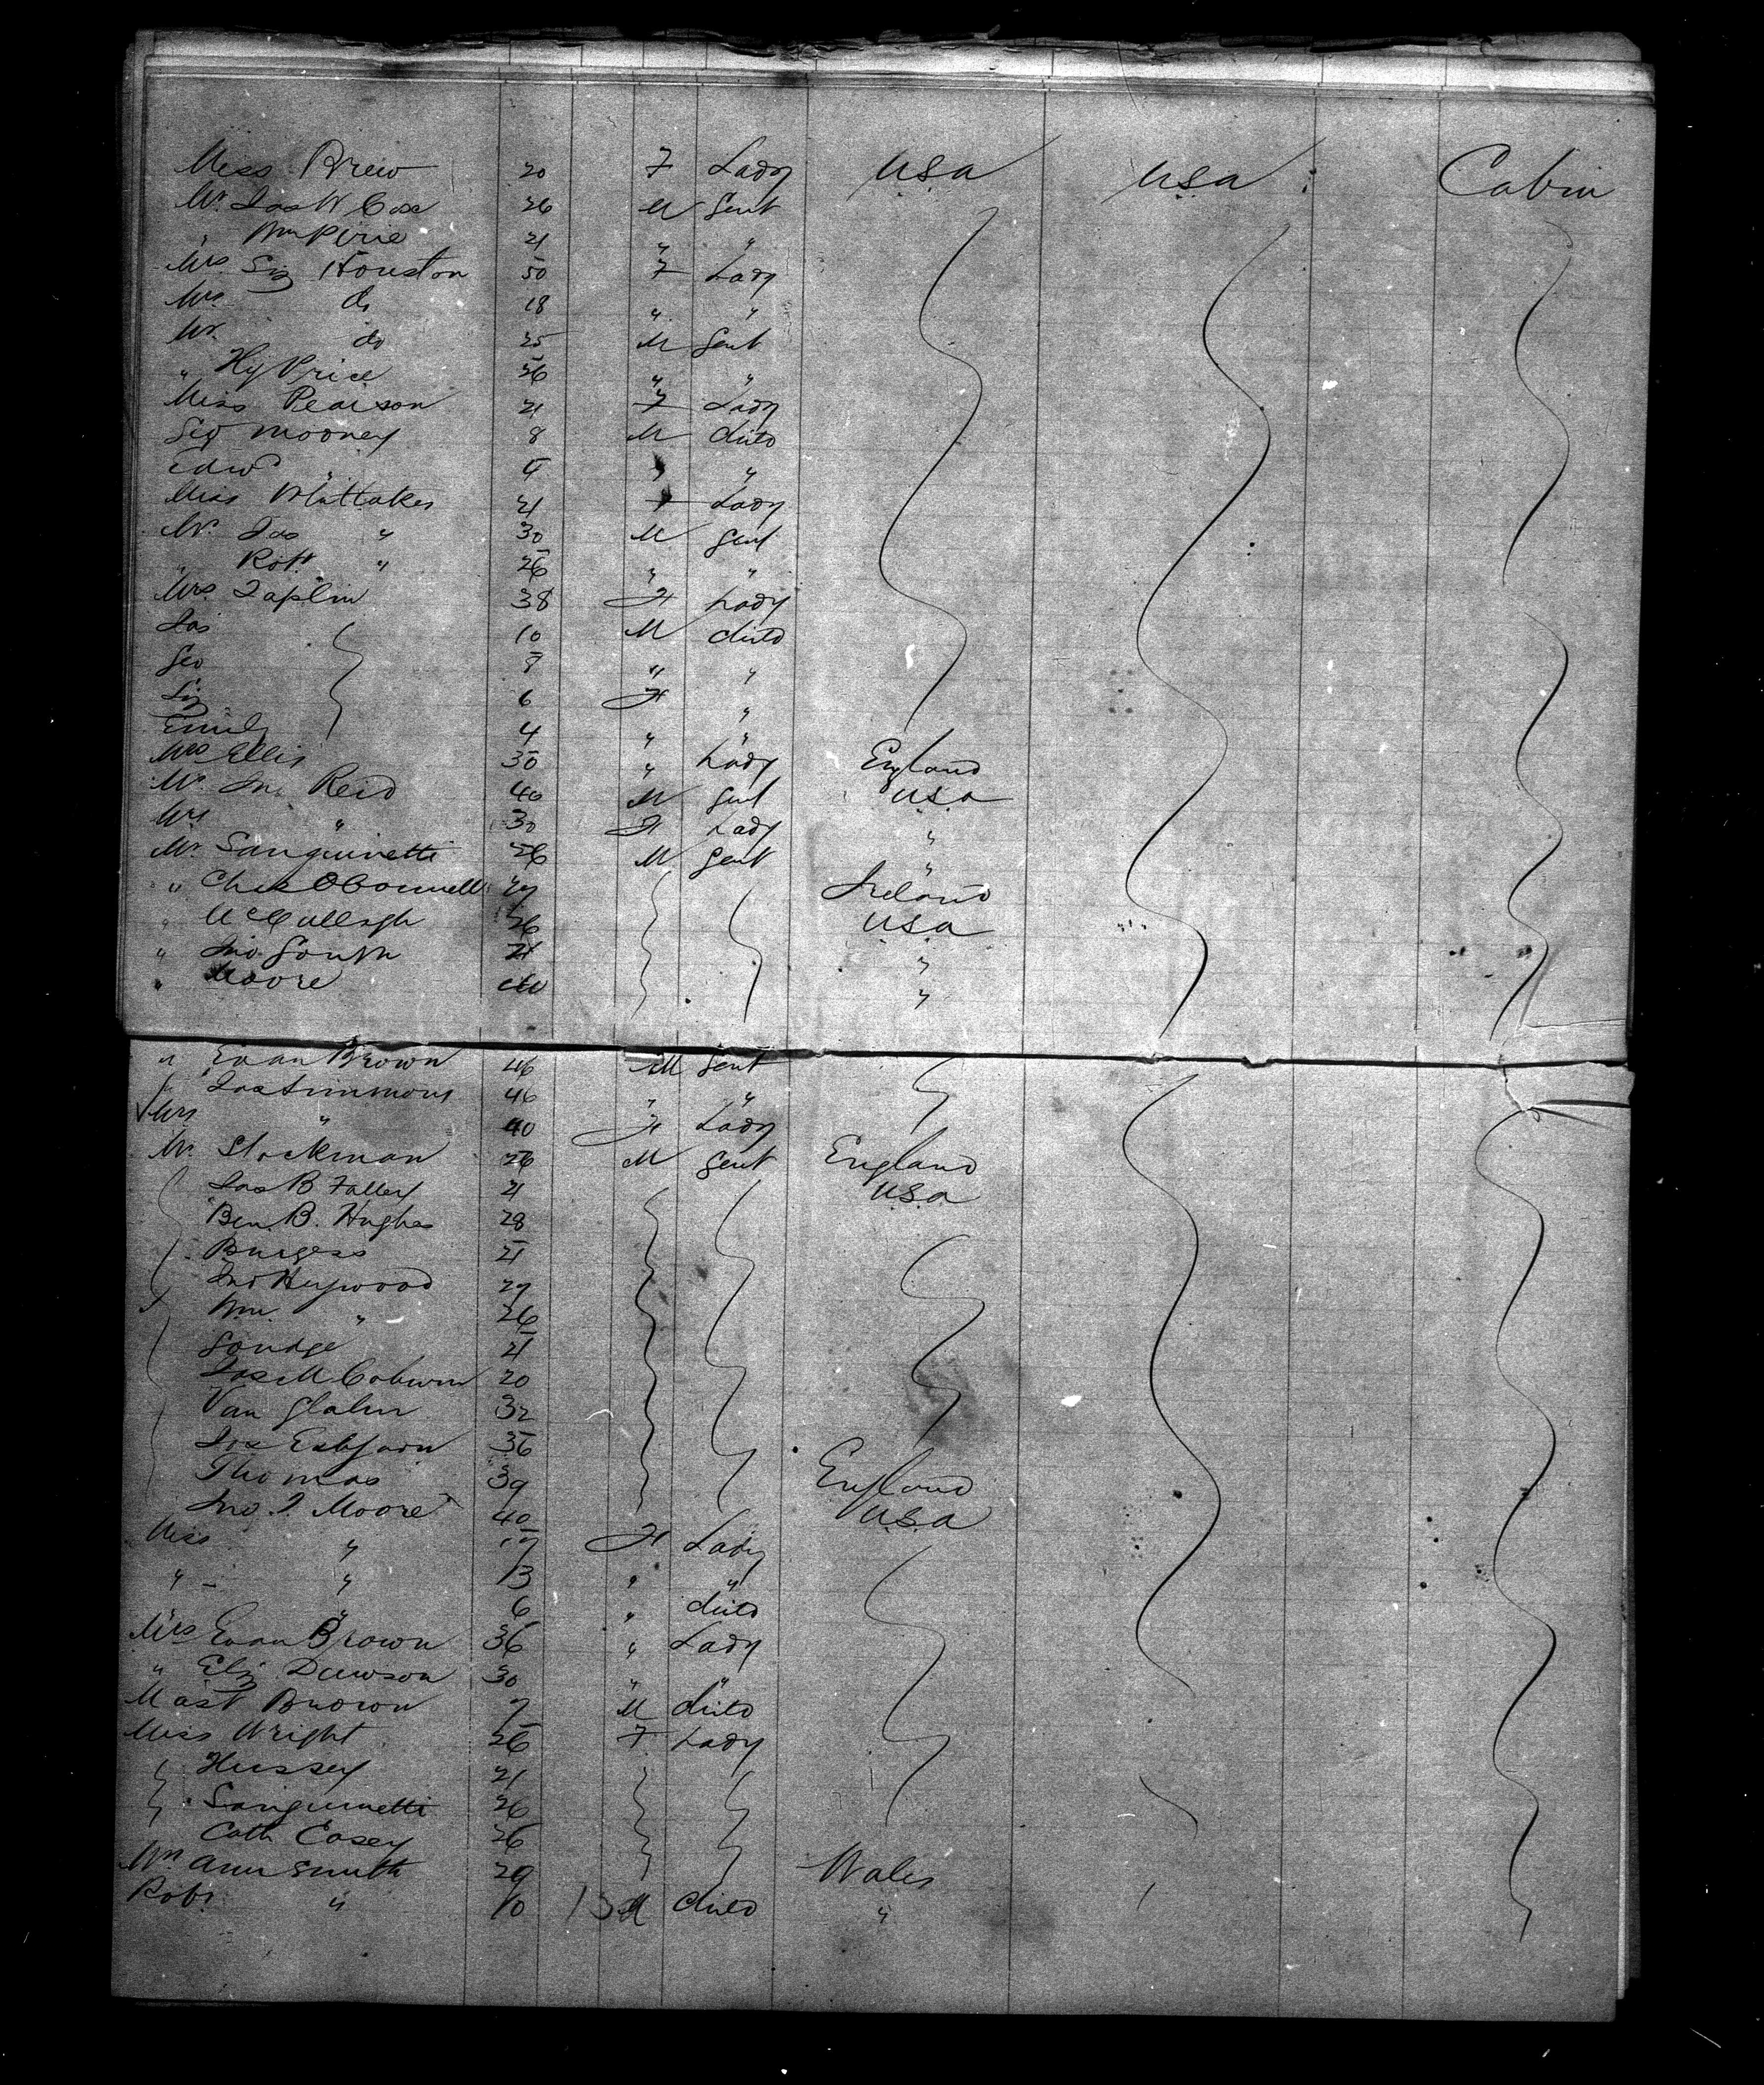 Miss Brew 20 F Lady USA USA Cabin
Mr. Jas W Cox 26 M Gent
" Wm Pirie 21 " "
Mrs Liz Houston 50 F Lady
Mrs do 18 " "
Mr. do 25 M Gent
" Hy Price 26 " "
Miss Pearson 21 F Lady
Geo Mooney 8 M ditto
Edwd " " "
Miss Whittaker 21 F Lady
Mr. Jas " 30 M Gent
" Robt " 26 " "
Mrs Taplin 38 F Lady
Jas 10 M ditto
Geo 8 " "
Liz 6 F "
Emily 4 " "
Mrs Ellis 30 " Lady England
Mr. Jno Reid 40 M Gent USA
Mrs " 30 F Lady "
Mr. Sanguinetti 26 M Gent "
" Chas OConnell 27 Ireland
" McCullagh 26 USA
" Jno South 21 "
" Moore "
" Evan Brown 46 M Gent
" Jas Simmons 46 " "
Mrs " 40 F Lady
Mr. Stockman 26 M Gent England
Jas B Falley 21 USA
Ben. B. Hughes 28
Burgess 21
Jno Heywood 27
Wm. " 26
21
Jas M Coburn 20
Van Glahn 32
Jos 36
Thomas 39 England
Jno. J. Moore 40 USA
Miss " 17 F Lady
" " 13 " "
" 6 " ditto
Mrs Evan Brown 36 " Lady
" Eliz Dawson 30 " "
Mast Brown 7 M ditto
Miss Wright 26 F Lady
Hussey 21
Sanguinetti 26
Cath Casey 26
Ann Smith 29 Wales
Robt " 10 M ditto "